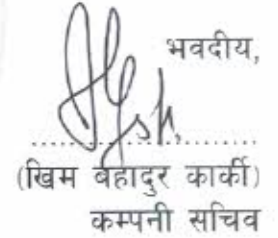 भवदीय,
(खिम बहादुर कार्की)
कम्पनी सचिव